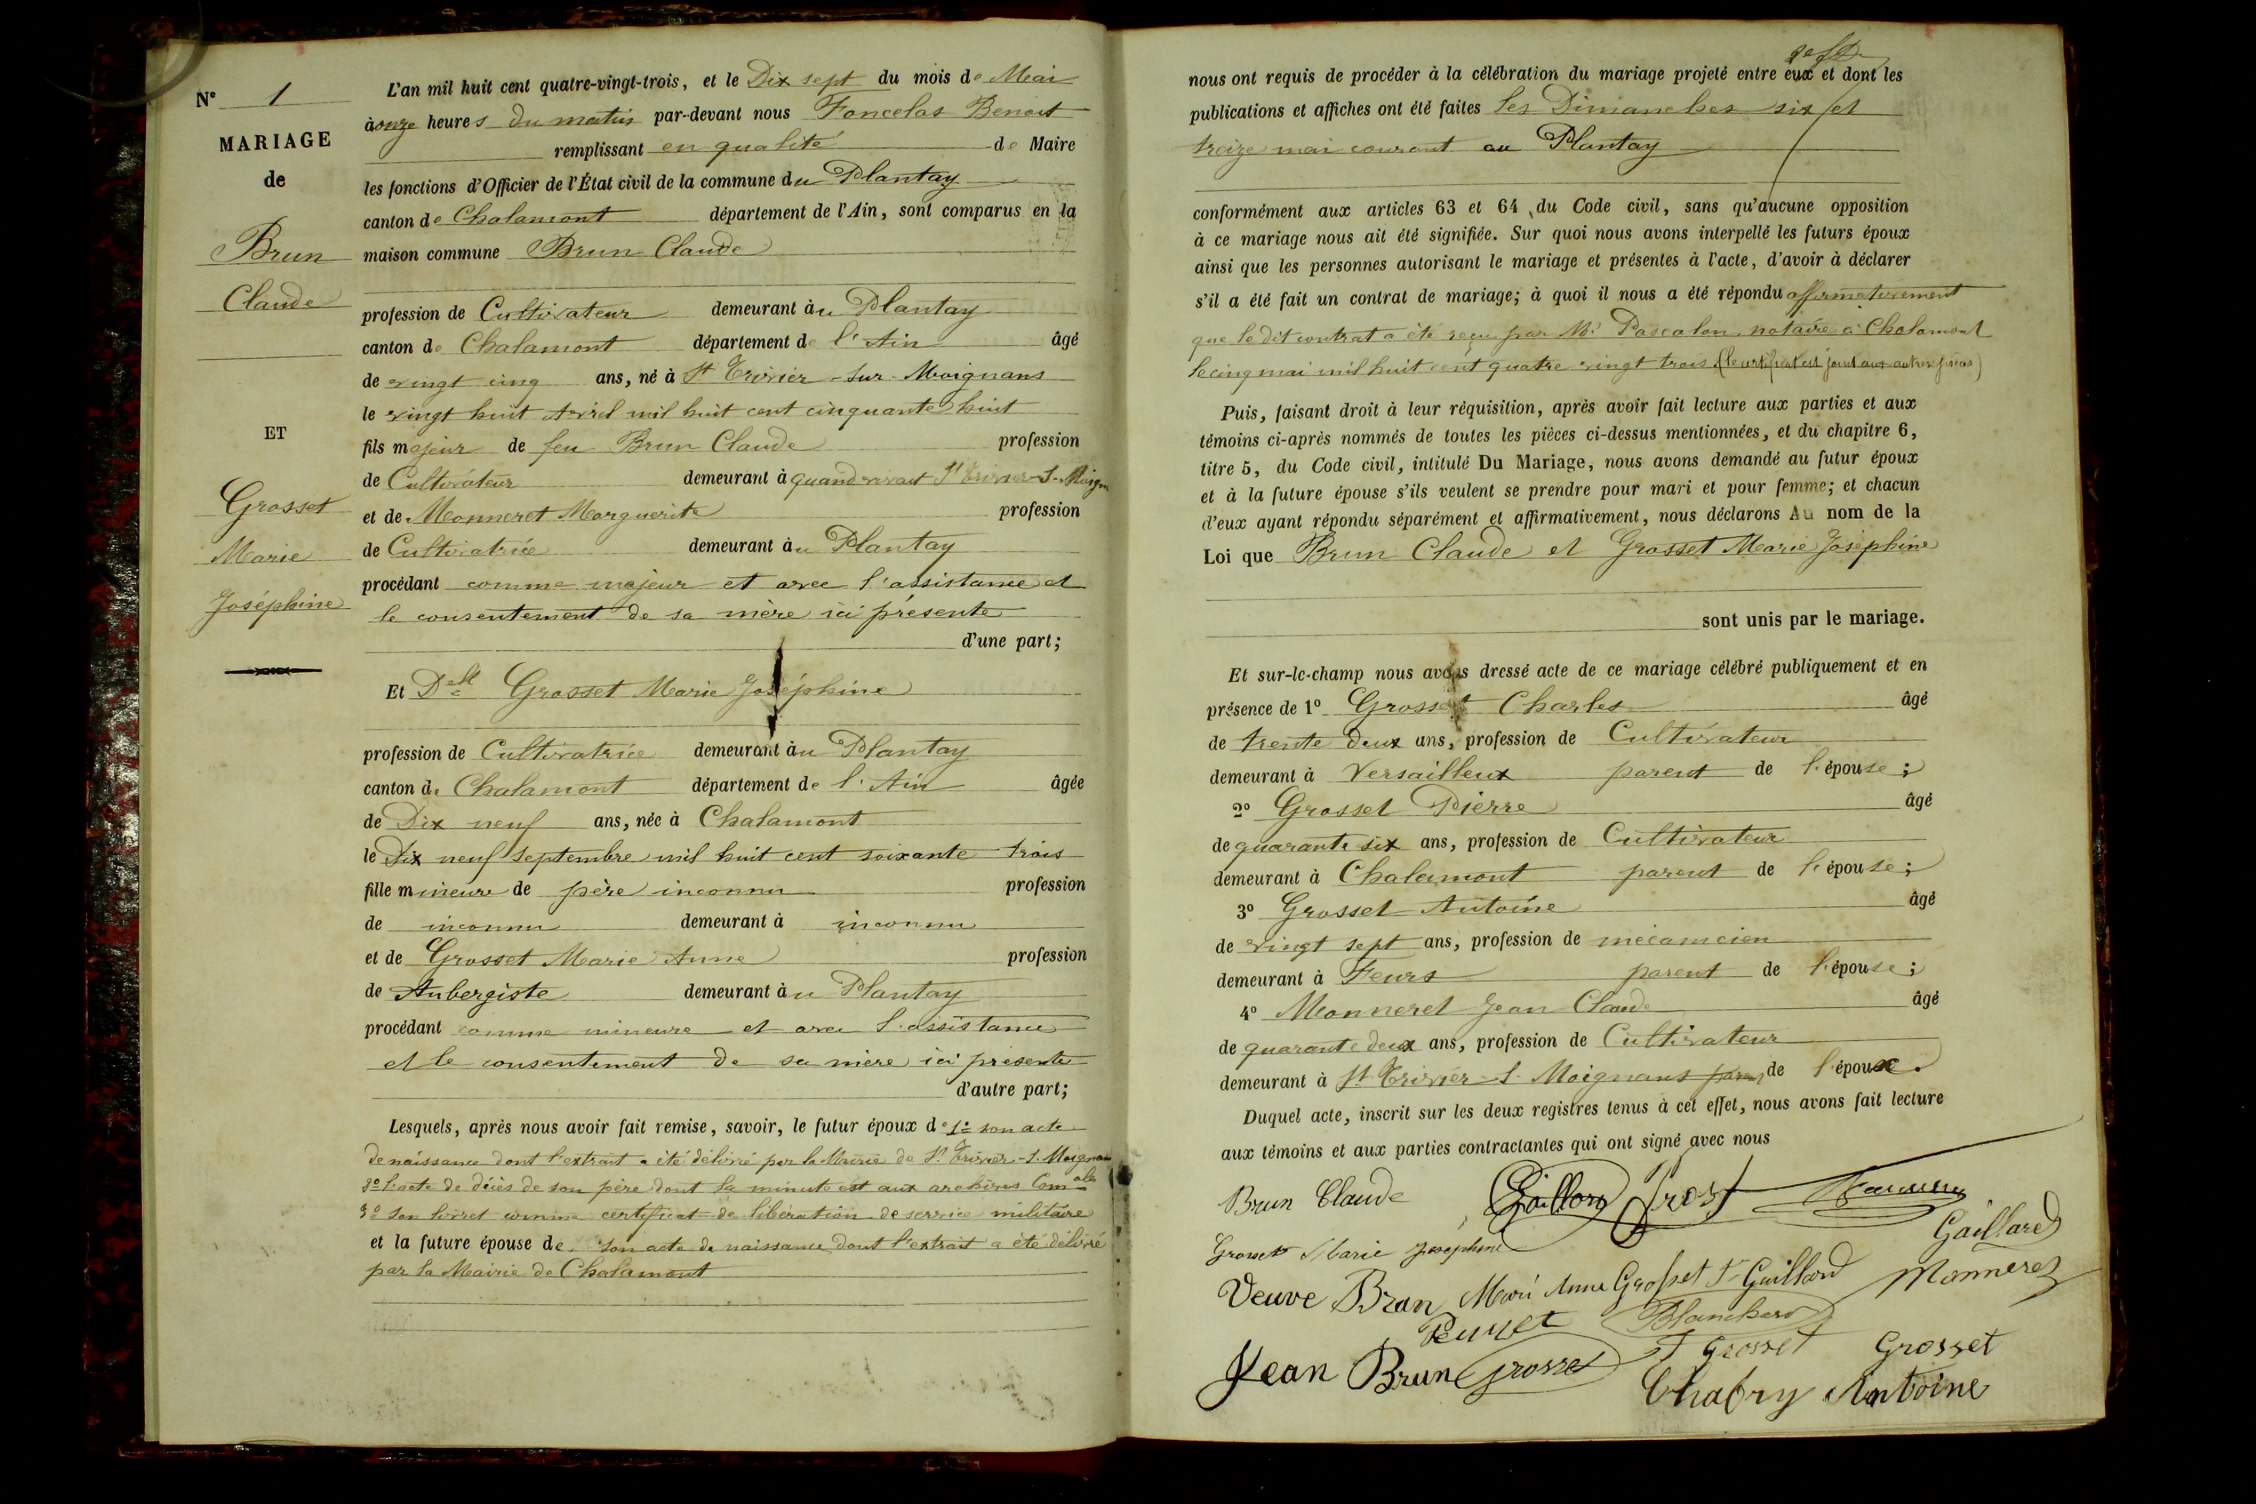 N° 1
MARIAGE
de
Brun
Claude
ET
Grosset
Marie
Joséphine
L'an mil huit cent quatre-vingt-trois, et le Dix sept du mois de Mai
à onze heures du matin par-devant nous Foncelas Benoit
remplissant en qualité de Maire
les fonctions d'Officier de l'État civil de la commune du Plantay
canton de Chalamont département de l'Ain, sont comparus en la
maison commune Brun Claude
profession de Cultivateur demeurant à u Plantay
canton de Chalamont département de l'Ain âgé
de vingt cinq ans, né à St Trivier-sur-Moignans
le vingt huit Avril mil huit cent cinquante huit
fils majeur de feu Brun Claude profession
de Cultivateur demeurant à quand vivait St Trivier-S-Moign
et de Monneret Marguerite profession
de Cultivatrice demeurant à u Plantay
procédant comme majeur et avec l'assistance et
le consentement de sa mère ici présente
d'une part;
Et Delle Grosset Marie Joséphine
profession de Cultivatrice demeurant à u Plantay
canton de Chalamont département de l'Ain âgée
de Dix neuf ans, née à Chalamont
le Dix neuf Septembre mil huit cent soixante trois
fille mineure de père inconnu profession
de inconnu demeurant à inconnu
et de Grosset Marie Anne profession
de Aubergiste demeurant à u Plantay
procédant comme mineure et avec l'assistance
et le consentement de sa mère ici présente
d'autre part;
Lesquels, après nous avoir fait remise, savoir, le futur époux de 1° son acte
de naissance dont l'extrait a été délivré par la Mairie de St Trivier-S-Moignans
2° l'acte de décès de son père dont la minute est aux archives Comales
3° son livret comme certificat de libération de service militaire
et la future épouse de son acte de naissance dont l'extrait a été délivré
par la Mairie de Chalamont
nous ont requis de procéder à la célébration du mariage projeté entre eux et dont les
publications et affiches ont été faites les Dimanches six et
treize mai courant au Plantay
conformément aux articles 63 et 64 du Code civil, sans qu'aucune opposition
à ce mariage nous ait été signifiée. Sur quoi nous avons interpellé les futurs époux
ainsi que les personnes autorisant le mariage et présentes à l'acte, d'avoir à déclarer
s'il a été fait un contrat de mariage; à quoi il nous a été répondu affirmativement
que le dit contrat a été reçu par Me Pascalon notaire à Chalamont
le cinq mai mil huit cent quatre vingt trois (le certificat est joint aux autres pièces)
Puis, faisant droit à leur réquisition, après avoir fait lecture aux parties et aux
témoins ci-après nommés de toutes les pièces ci-dessus mentionnées, et du chapitre 6,
titre 5, du Code civil, intitulé Du Mariage, nous avons demandé au futur époux
et à la future épouse s'ils veulent se prendre pour mari et pour femme; et chacun
d'eux ayant répondu séparément et affirmativement, nous déclarons Au nom de la
Loi que Brun Claude et Grosset Marie Joséphine
sont unis par le mariage.
Et sur-le-champ nous avons dressé acte de ce mariage célébré publiquement et en
présence de 1° Grosset Charles âgé
de trente deux ans, profession de Cultivateur
demeurant à Versailleux parent de l'épouse;
2° Grosset Pierre âgé
de quarante six ans, profession de Cultivateur
demeurant à Chalamont parent de l'épouse;
3° Grosset Antoine âgé
de vingt sept ans, profession de mécanicien
demeurant à Feurs parent de l'épouse;
4° Monneret Jean Claude âgé
de quarante deux ans, profession de Cultivateur
demeurant à St Trivier-S-Moignans de l'époux.
Duquel acte, inscrit sur les deux registres tenus à cet effet, nous avons fait lecture
aux témoins et aux parties contractantes qui ont signé avec nous
Brun Claude
Gaillard
Grosset Marie Joséphine
Veuve Brun Marie Anne Grosset Monneret
Blanchard
Jean Brun Grosset F Grosset Grosset
Chabry Antoine